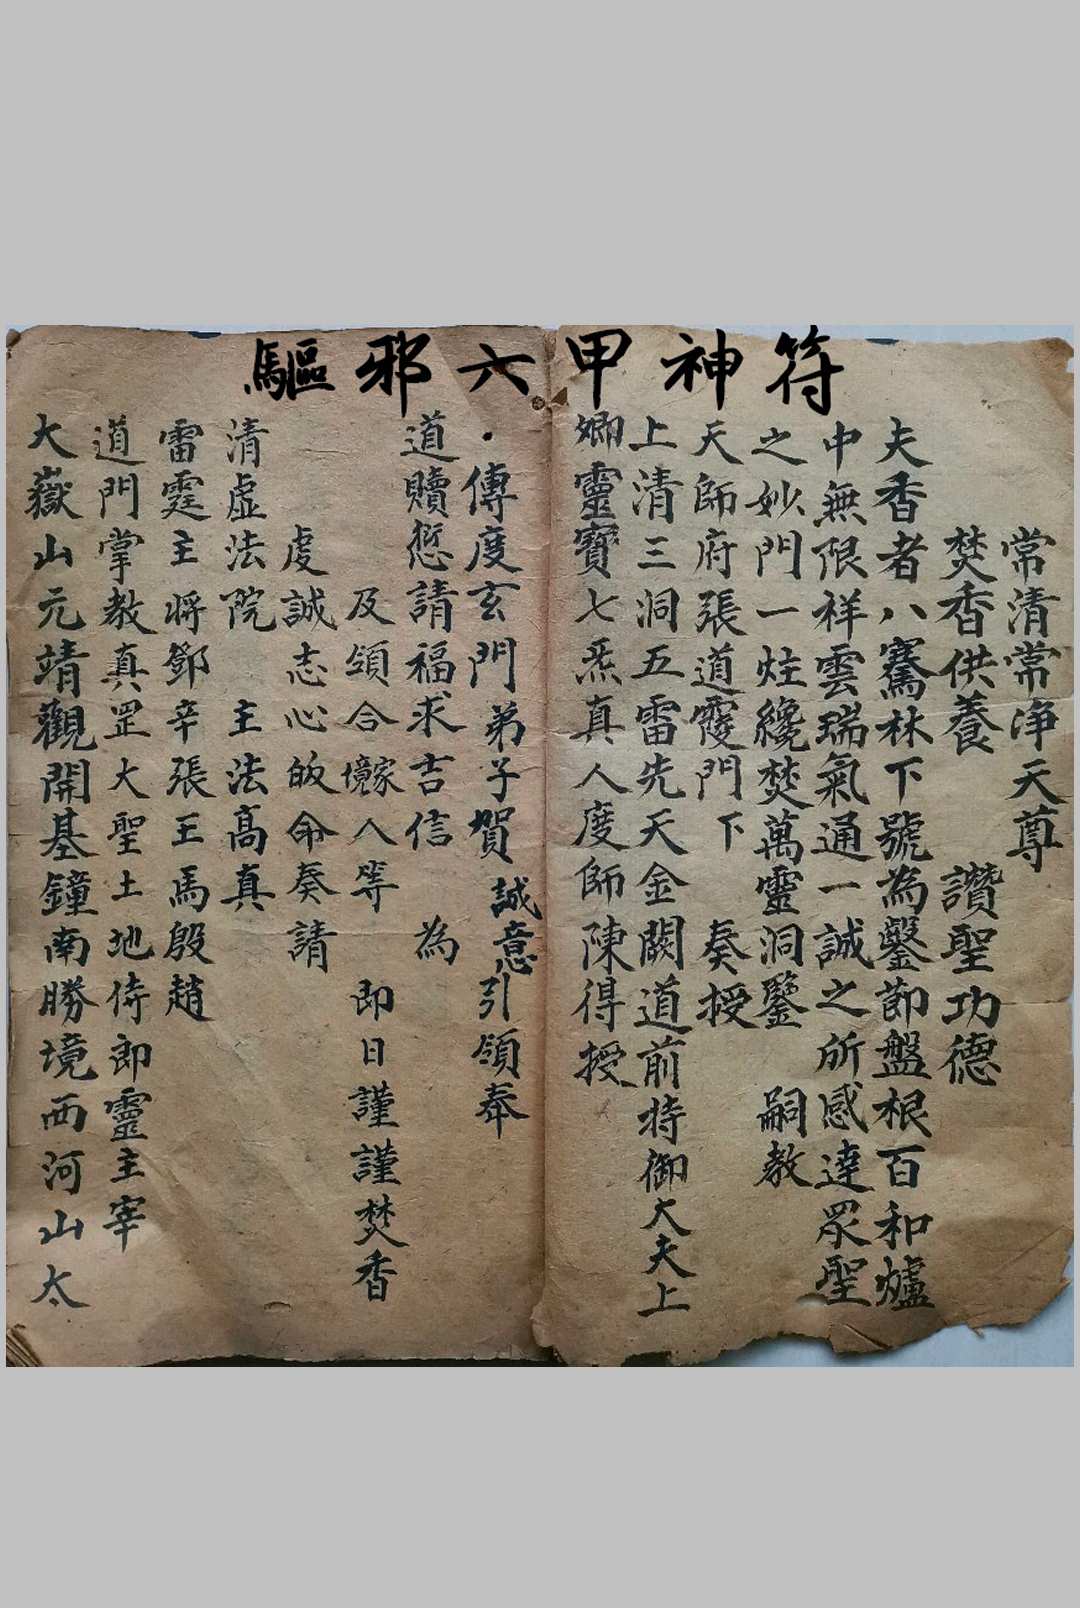 驅邪六甲神符
常清常净天尊
焚香供養 讚聖功德
夫香者八騫林下號為鑿節盤根百和爐
中無限祥雲瑞氣通一誠之所感達眾聖
之妙門一炷纔焚萬靈洞鑒 嗣教
天師府張道霞門下 奏授
上清三洞五雷先天金闕道前持御大夫上
卿靈寶七炁真人度師陳得授
·傳度玄門弟子賀誠意引領奉
道贖愆請福求吉信 為
及領合家境人等 即日謹謹焚香
虔誠志心皈命奏請
清虛法院 主法高真
雷霆主將鄧辛張王馬殷趙
道門掌教真罡大聖土地侍郎靈主宰
大嶽山元靖觀開基鐘南勝境西河山太